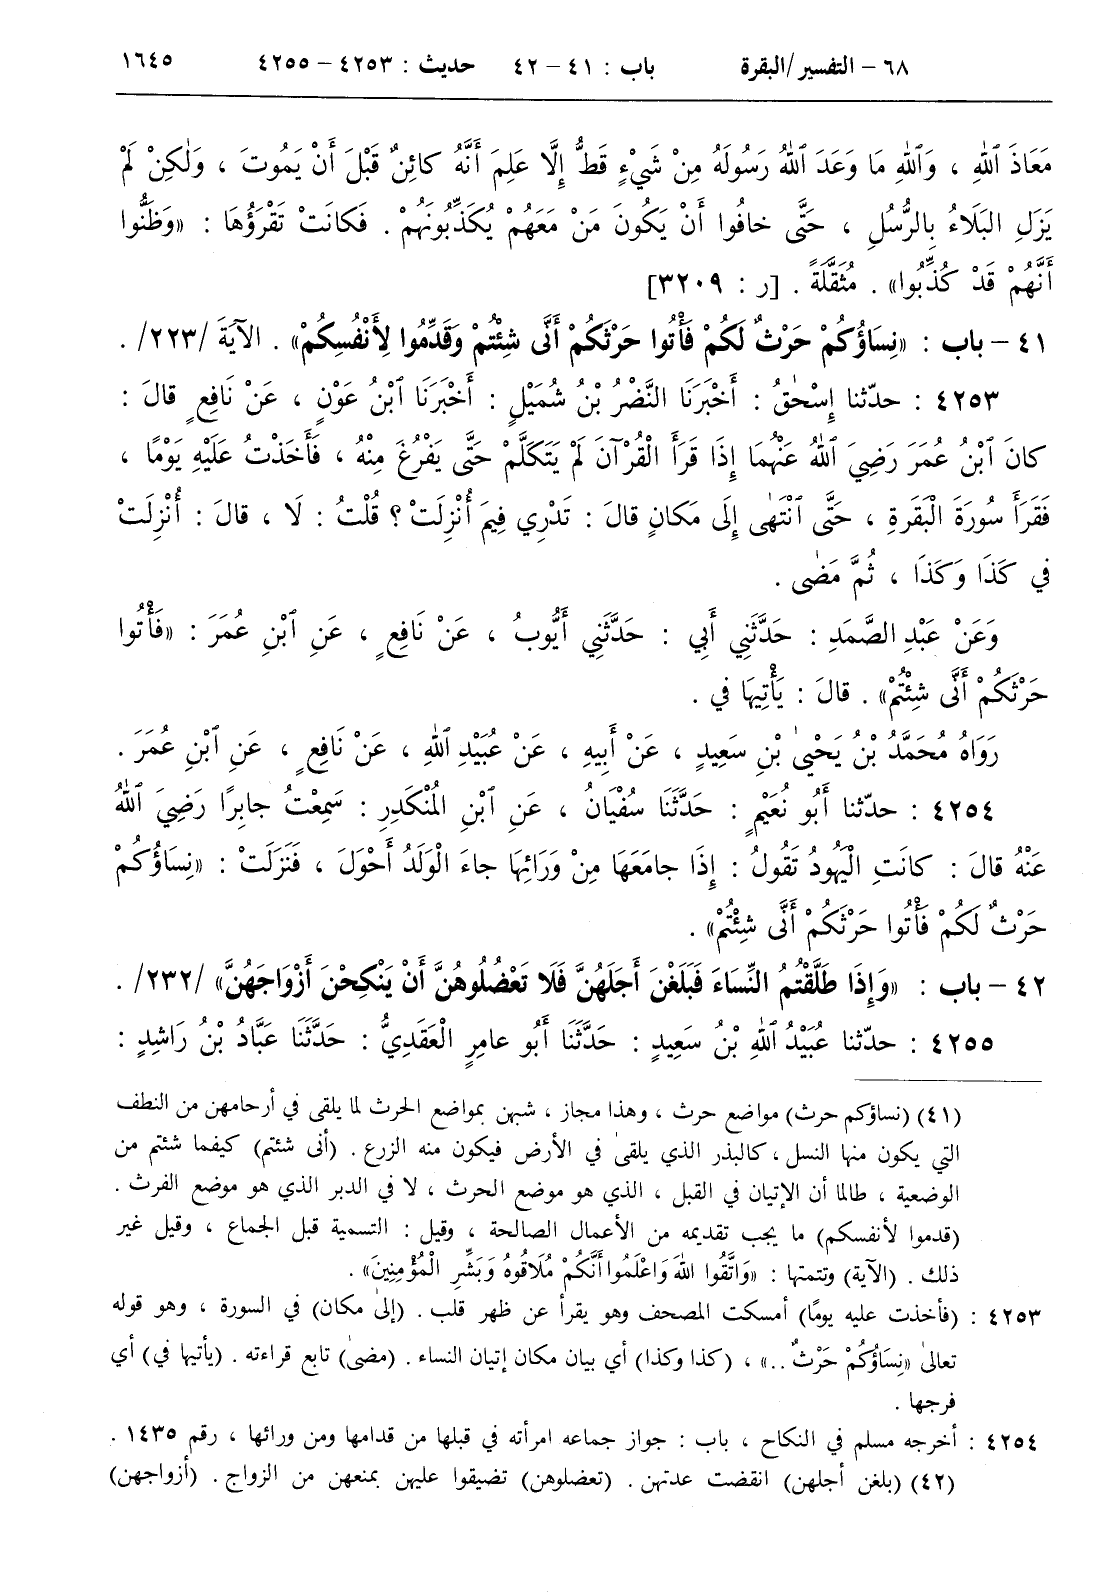 ٦٨ – التفسير/البقرة باب : ٤١ – ٤٢ حديث : ٤٢٥٣ – ٤٢٥٥ ١٦٤٥
مَعَاذَ ٱللهِ ، وَٱللهِ مَا وَعَدَ ٱللهُ رَسُولَهُ مِنْ شَيْءٍ قَطُّ إِلَّا عَلِمَ أَنَّهُ كائِنٌ قَبْلَ أَنْ يَمُوتَ ، وَلٰكِنْ لَمْ
يَزَلِ البَلَاءُ بِالرُّسُلِ ، حَتَّى خافُوا أَنْ يَكُونَ مَنْ مَعَهُمْ يُكَذِّبُونَهُمْ . فَكانَتْ تَقْرَؤُهَا : «وَظَنُّوا
أَنَّهُمْ قَدْ كُذِّبُوا» . مُثَقَّلَةً . [ر : ٣٢٠٩]
٤١ – باب : «نِسَاؤُكُمْ حَرْثٌ لَكُمْ فَأْتُوا حَرْثَكُمْ أَنَّى شِئْتُمْ وَقَدِّمُوا لِأَنْفُسِكُمْ» . الآيَةَ /٢٢٣/ .
٤٢٥٣ : حدّثنا إِسْحٰقُ : أَخْبَرَنَا النَّضْرُ بْنُ شُمَيْلٍ : أَخْبَرَنَا ٱبْنُ عَوْنٍ ، عَنْ نَافِعٍ قالَ :
كانَ ٱبْنُ عُمَرَ رَضِيَ ٱللهُ عَنْهُمَا إِذَا قَرَأَ الْقُرْآنَ لَمْ يَتَكَلَّمْ حَتَّى يَفْرُغَ مِنْهُ ، فَأَخَذْتُ عَلَيْهِ يَوْمًا ،
فَقَرَأَ سُورَةَ الْبَقَرَةِ ، حَتَّى ٱنْتَهٰى إِلَى مَكانٍ قالَ : تَدْرِي فِيمَ أُنْزِلَتْ ؟ قُلْتُ : لَا ، قالَ : أُنْزِلَتْ
في كَذَا وَكَذَا ، ثُمَّ مَضٰى .
وَعَنْ عَبْدِ الصَّمَدِ : حَدَّثَنِي أَبِي : حَدَّثَنِي أَيُّوبُ ، عَنْ نَافِعٍ ، عَنِ ٱبْنِ عُمَرَ : «فَأْتُوا
حَرْثَكُمْ أَنَّى شِئْتُمْ» . قالَ : يَأْتِيهَا في .
رَوَاهُ مُحَمَّدُ بْنُ يَحْيىٰ بْنِ سَعِيدٍ ، عَنْ أَبِيهِ ، عَنْ عُبَيْدِ ٱللهِ ، عَنْ نَافِعٍ ، عَنِ ٱبْنِ عُمَرَ .
٤٢٥٤ : حدّثنا أَبُو نُعَيْمٍ : حَدَّثَنَا سُفْيَانُ ، عَنِ ٱبْنِ الْمُنْكَدِرِ : سَمِعْتُ جابِرًا رَضِيَ ٱللهُ
عَنْهُ قالَ : كانَتِ الْيَهُودُ تَقُولُ : إِذَا جامَعَهَا مِنْ وَرَائِهَا جاءَ الْوَلَدُ أَحْوَلَ ، فَنَزَلَتْ : «نِسَاؤُكُمْ
حَرْثٌ لَكُمْ فَأْتُوا حَرْثَكُمْ أَنَّى شِئْتُمْ» .
٤٢ – باب : «وَإِذَا طَلَّقْتُمُ النِّسَاءَ فَبَلَغْنَ أَجَلَهُنَّ فَلَا تَعْضُلُوهُنَّ أَنْ يَنْكِحْنَ أَزْوَاجَهُنَّ» /٢٣٢/ .
٤٢٥٥ : حدّثنا عُبَيْدُ ٱللهِ بْنُ سَعِيدٍ : حَدَّثَنَا أَبُو عامِرٍ الْعَقَدِيُّ : حَدَّثَنَا عَبَّادُ بْنُ رَاشِدٍ :
(٤١) (نساؤكم حرث) مواضع حرث ، وهذا مجاز ، شبهن بمواضع الحرث لما يلقى في أرحامهن من النطف
التي يكون منها النسل ، كالبذر الذي يلقىٰ في الأرض فيكون منه الزرع . (أنى شئتم) كيفما شئتم من
الوضعية ، طالما أن الإتيان في القبل ، الذي هو موضع الحرث ، لا في الدبر الذي هو موضع الفرث .
(قدموا لأنفسكم) ما يجب تقديمه من الأعمال الصالحة ، وقيل : التسمية قبل الجماع ، وقيل غير
ذلك . (الآية) وتتمتها : «وَاتَّقُوا اللهَ وَاعْلَمُوا أَنَّكُمْ مُلَاقُوهُ وَبَشِّرِ الْمُؤْمِنِينَ» .
٤٢٥٣ : (فأخذت عليه يومًا) أمسكت المصحف وهو يقرأ عن ظهر قلب . (إلىٰ مكان) في السورة ، وهو قوله
تعالىٰ «نِسَاؤُكُمْ حَرْثٌ ..» ، (كذا وكذا) أي بيان مكان إتيان النساء . (مضىٰ) تابع قراءته . (يأتيها في) أي
فرجها .
٤٢٥٤ : أخرجه مسلم في النكاح ، باب : جواز جماعه امرأته في قبلها من قدامها ومن ورائها ، رقم ١٤٣٥ .
(٤٢) (بلغن أجلهن) انقضت عدتهن . (تعضلوهن) تضيقوا عليهن بمنعهن من الزواج . (أزواجهن)